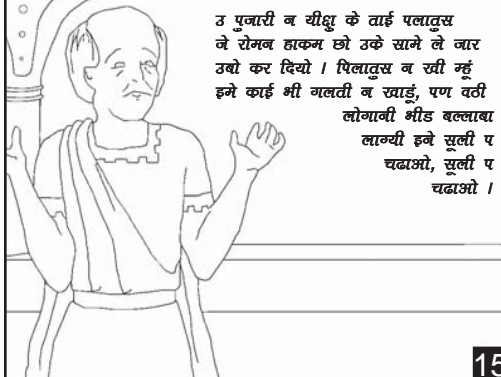 उ पुजारी न यीशु के ताई पलातुस
जे रोमन हाकम छो उके सामे ले जार
उबो कर दियो । पिलातुस न खी म्हूं
इमे काई भी गलती न खाडूं, पण वठी
लोगानी भीड बल्लाबा
लाग्यी इने सूली प
चढाओ, सूली प
चढाओ ।
15